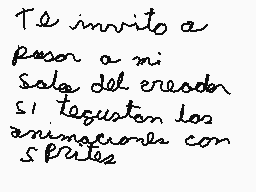 Te invito a
pasar a mi
Sala del creador
si tegustan las
animaciones con
sprites